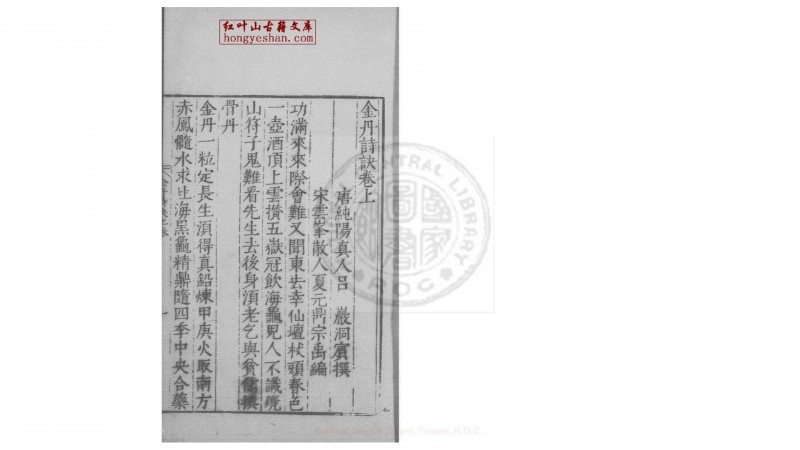 红叶山古籍文库
hongyeshan.com
金丹詩訣卷上
唐純陽真人呂　巖洞賓撰
宋雲峯散人夏元鼎宗禹編
功滿來來際會難又聞東去幸仙壇杖頭春色
一壺酒頂上雲攢五嶽冠飲海龜兒人不識燒
山符子鬼難看先生去後身湏老乞與貧儒換
骨丹
金丹一粒定長生湏得真鉛煉甲庚火取南方
赤鳳髓水求北海黑龜精鼎隨四季中央合藥
一
CENTRAL LIBRARY
R.O.C.
國家
Taiwan, R.O.C.